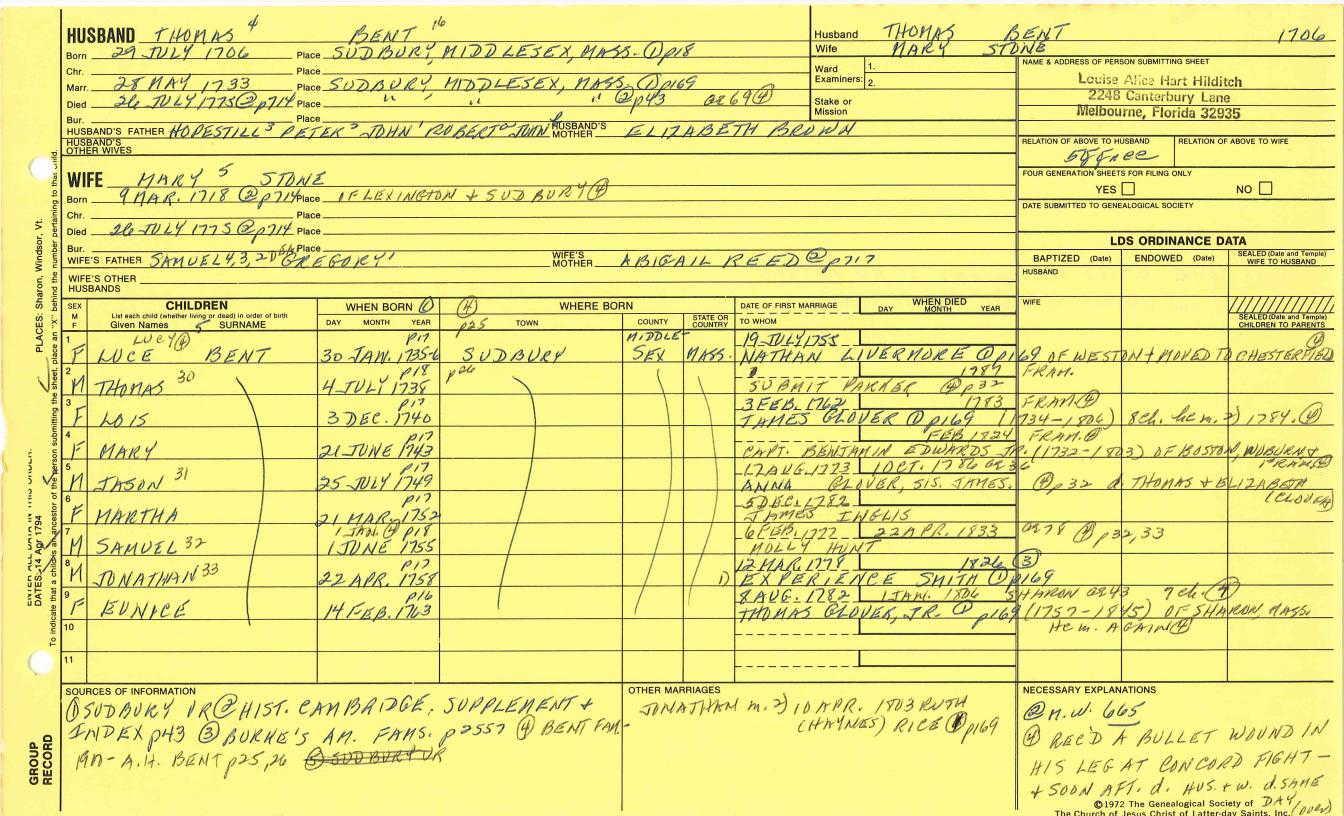 HUSBAND THOMAS 4 BENT 16
Born 29 JULY 1706 Place SUDBURY, MIDDLESEX, MASS. ① p18
Chr. Place
Marr. 28 MAY 1733 Place SUDBURY, MIDDLESEX, MASS. ① p169
Died 26 JULY 1775 ② p714 Place " " " ② p43 ae 69 ④
Bur. Place
HUSBAND'S FATHER HOPESTILL 3 PETER JOHN ROBERT JOHN HUSBAND'S MOTHER ELIZABETH BROWN
HUSBAND'S OTHER WIVES
WIFE MARY 5 STONE
Born 9 MAR. 1718 ② p714 Place OF LEXINGTON + SUDBURY ④
Chr. Place
Died 26 JULY 1775 ② p714 Place
Bur. Place
WIFE'S FATHER SAMUEL 4, 3, 2 GREGORY 1 WIFE'S MOTHER ABIGAIL REED ② p717
WIFE'S OTHER HUSBANDS
Husband THOMAS BENT 1706
Wife MARY STONE
Ward Examiners: 1.
2.
Stake or Mission
NAME & ADDRESS OF PERSON SUBMITTING SHEET
Louise Alice Hart Hilditch
2248 Canterbury Lane
Melbourne, Florida 32935
RELATION OF ABOVE TO HUSBAND RELATION OF ABOVE TO WIFE
FOUR GENERATION SHEETS FOR FILING ONLY
YES NO
DATE SUBMITTED TO GENEALOGICAL SOCIETY
LDS ORDINANCE DATA
BAPTIZED (Date) ENDOWED (Date) SEALED (Date and Temple) WIFE TO HUSBAND
HUSBAND
WIFE
SEALED (Date and Temple) CHILDREN TO PARENTS
SEX M F
CHILDREN
List each child (whether living or dead) in order of birth
Given Names 5 SURNAME
WHEN BORN ①
DAY MONTH YEAR
④ p25 WHERE BORN
TOWN COUNTY STATE OR COUNTRY
DATE OF FIRST MARRIAGE
TO WHOM
WHEN DIED
DAY MONTH YEAR
1 LUCY ④ p17 MIDDLE- 19 JULY 1755
F LUCE BENT 30 JAN. 1735-6 SUDBURY SEX MASS. NATHAN LIVERMORE ① p169 OF WESTON + MOVED TO CHESTERFIELD ④
2 p18 p26 1789 FRAM.
M THOMAS 30 4 JULY 1738 SUBMIT PARKER ④ p32
3 p17 3 FEB. 1762 1783 FRAM ④
F LOIS 3 DEC. 1740 JAMES GLOVER ① p169 (1734-1806) 8 ch. he m. 2) 1784. ④
4 p17 FEB 1824 FRAM. ④
F MARY 21 JUNE 1743 CAPT. BENJAMIN EDWARDS JR. (1732-1803) OF BOSTON, WOBURN + FRAM ④
5 p17 17 AUG. 1773 1 OCT. 1786 ae 36
M JASON 31 25 JULY 1749 ANNA GLOVER, SIS. JAMES. ④ p32 d. THOMAS + ELIZABETH (CLOUGH)
6 p17 5 DEC. 1782
F MARTHA 21 MAR. 1752 JAMES INGLIS
7 1 JAN. ④ p18 6 FEB. 1777 22 APR. 1833 ae 78 ④ p32, 33
M SAMUEL 32 1 JUNE 1755 MOLLY HUNT
8 p17 12 MAR. 1778 1826 ③
M JONATHAN 33 22 APR. 1758 1) EXPERIENCE SMITH ① p169
9 p16 8 AUG. 1782 1 JAN. 1806 SHARON ae 43 7 ch. ④
F EUNICE 14 FEB. 1763 THOMAS GLOVER, JR. ① p169 (1757-1845) OF SHARON, MASS.
He m. AGAIN ④
10
11
SOURCES OF INFORMATION
① SUDBURY VR ② HIST. CAMBRIDGE, SUPPLEMENT +
INDEX p43 ③ BURKE'S AM. FAMS. p2557 ④ BENT FAM-
A.H. BENT p25, 26 ⑤ SUDBURY VR
OTHER MARRIAGES
JONATHAN m. 2) 10 APR. 1803 RUTH
(HAYNES) RICE ① p169
NECESSARY EXPLANATIONS
② M.W. 665
④ REC'D A BULLET WOUND IN
HIS LEG AT CONCORD FIGHT —
+ SOON AFT. d. HUS. + W. d. SAME
DAY (over)
©1972 The Genealogical Society of
The Church of Jesus Christ of Latter-day Saints, Inc.
PLACES: Sharon, Windsor, Vt.
ENTER ALL DATA IN THIS ORDER:
DATES: 14 Apr 1794
GROUP RECORD